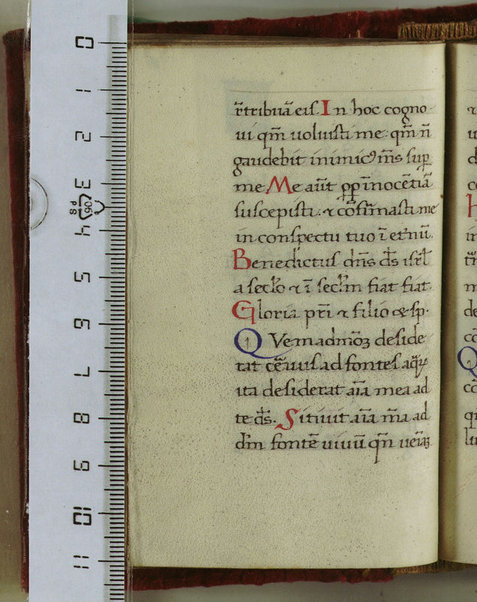 r̄tribuā eis. In hoc cogno
ui qm̄ uoluisti me qm̄ n̄
gaudebit inimic9 m̄s sup̄
me. Me aūt pp̄ inocētiā
suscepisti ⁊ cōfirmasti me
in conspectu tuo ī etnū.
Benedictus dn̄s ds̄ isrl̄
a seclo ⁊ ī seclm̄ fiat fiat.
Gloria pr̄i ⁊ filio & sp.
Quemadmoꝫ deside
rat cēuus ad fontes aq̄ꝝ
ita desiderat aīa mea ad
te ds̄. Sitiuit aīa m̄a ad
dm̄ fontē uiuū qn̄ ueiaꝫ
0
1
2
3
4
5
6
7
8
9
10
11